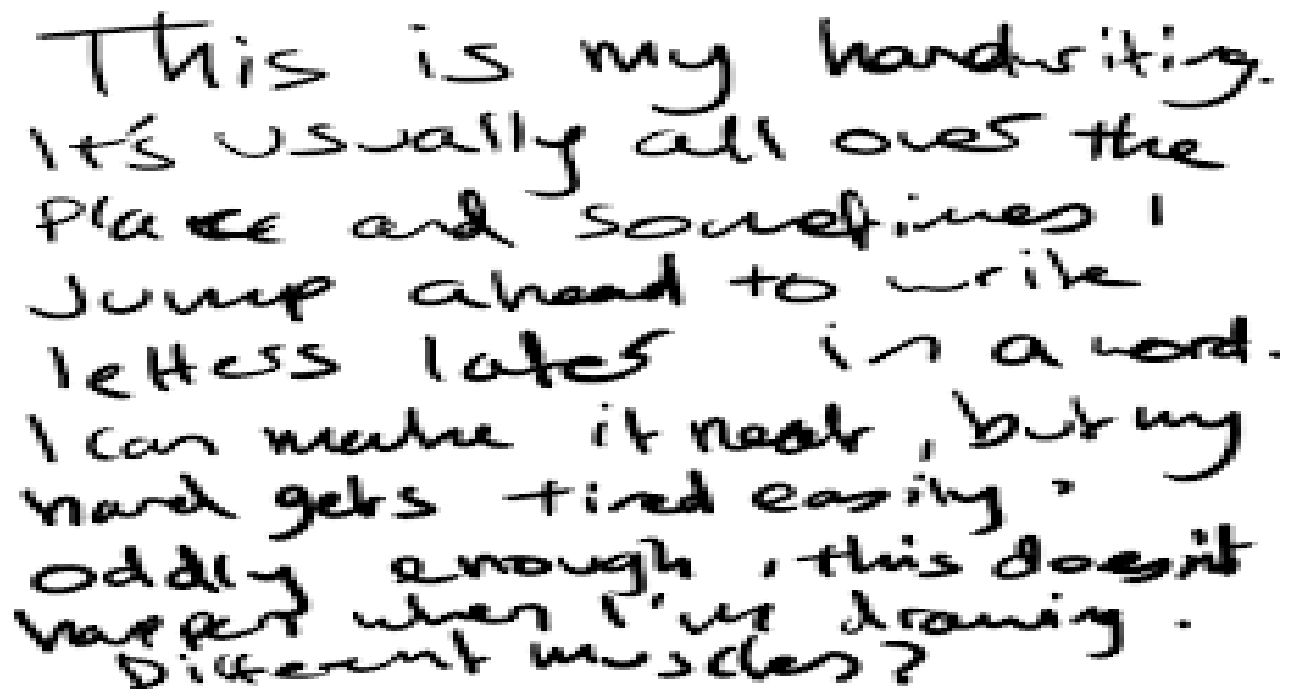 This is my handwriting.
It's usually all over the
place and sometimes I
jump ahead to write
letters later in a word.
I can make it neat, but my
hand gets tired easily.
oddly enough, this doesn't
happen when I'm drawing.
Different muscles?